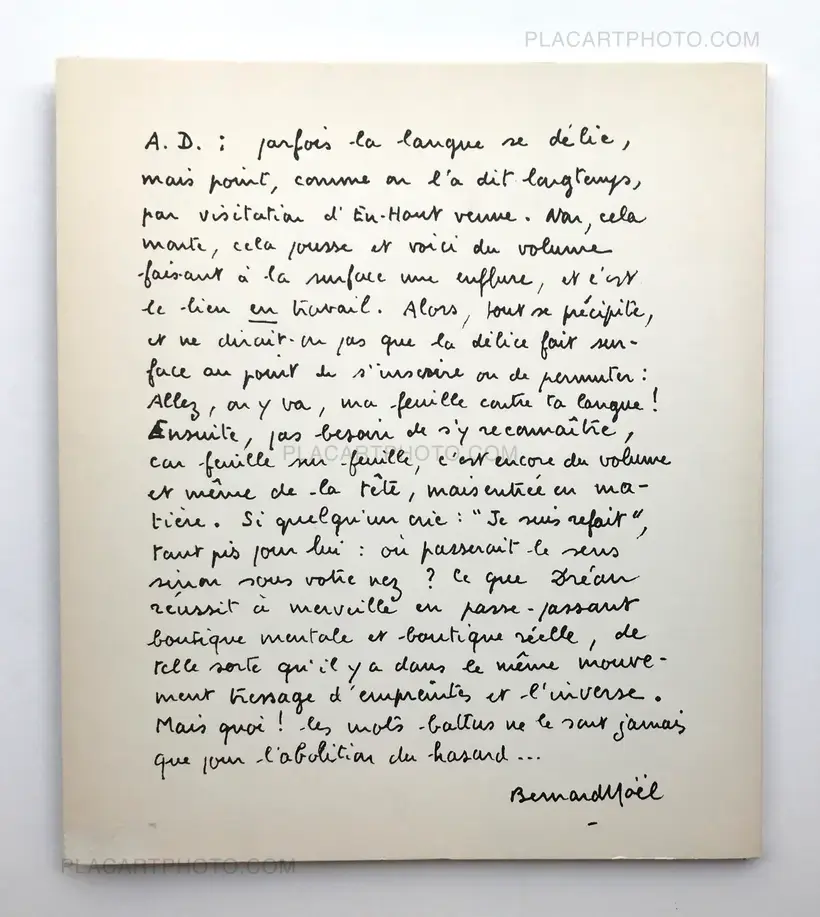 PLACARTPHOTO.COM
A. D. : parfois la langue se délie,
mais point, comme on l'a dit longtemps,
par visitation d'En-Haut venue. Non, cela
monte, cela pousse et voici du volume
faisant à la surface une enflure, et c'est
le lieu en travail. Alors, tout se précipite,
et ne dirait-on pas que la délice fait sur-
face au point de s'inscrire ou de permuter :
Allez, on y va, ma feuille contre ta langue !
Ensuite, pas besoin de s'y reconnaître,
PLACARTPHOTO.COM
car feuille sur feuille, c'est encore du volume
et même de la tête, mais entrée en ma-
tière. Si quelqu'un crie : "Je suis refait",
tant pis pour lui : où passerait le sens
sinon sous votre nez ? Ce que Dréan
réussit à merveille en passe-passant
boutique mentale et boutique réelle, de
telle sorte qu'il y a dans le même mouve-
ment tressage d'empreintes et l'inverse.
Mais quoi ! les mots battus ne le sont jamais
que pour l'abolition du hasard...
Bernard Noël
PLACARTPHOTO.COM